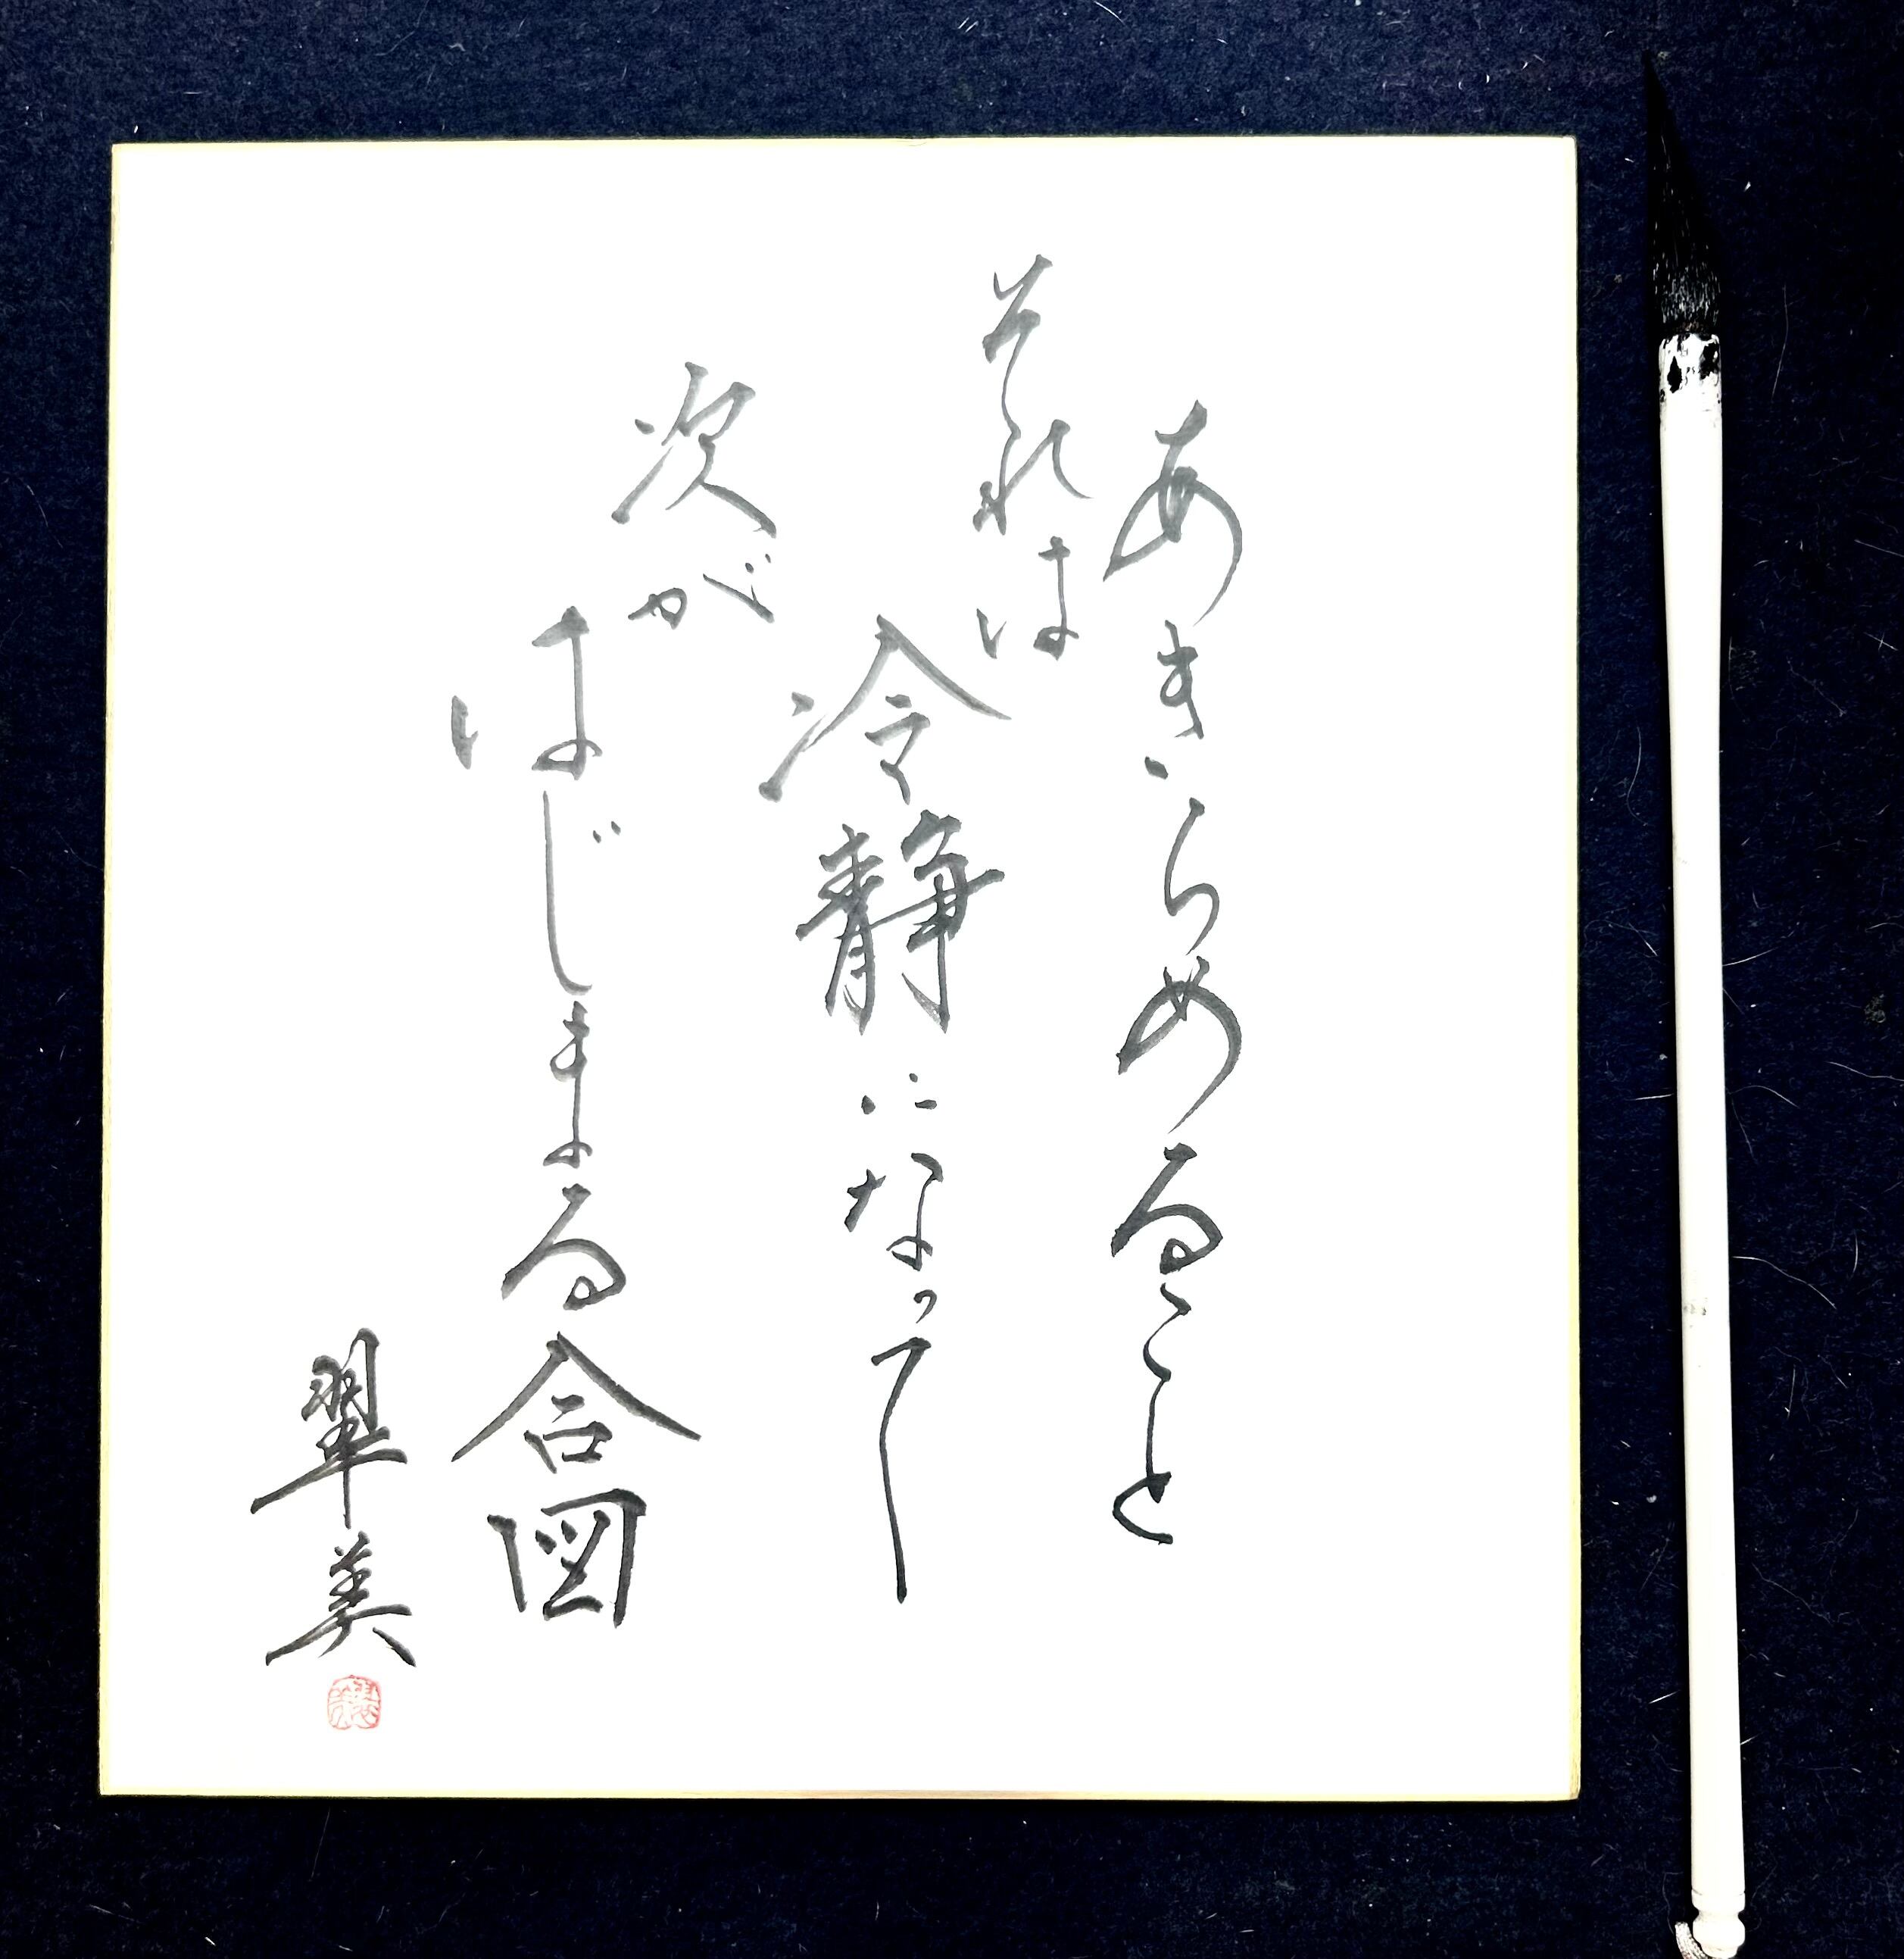 あきらめること
それは
冷静になって
次が
はじまる合図
翠美